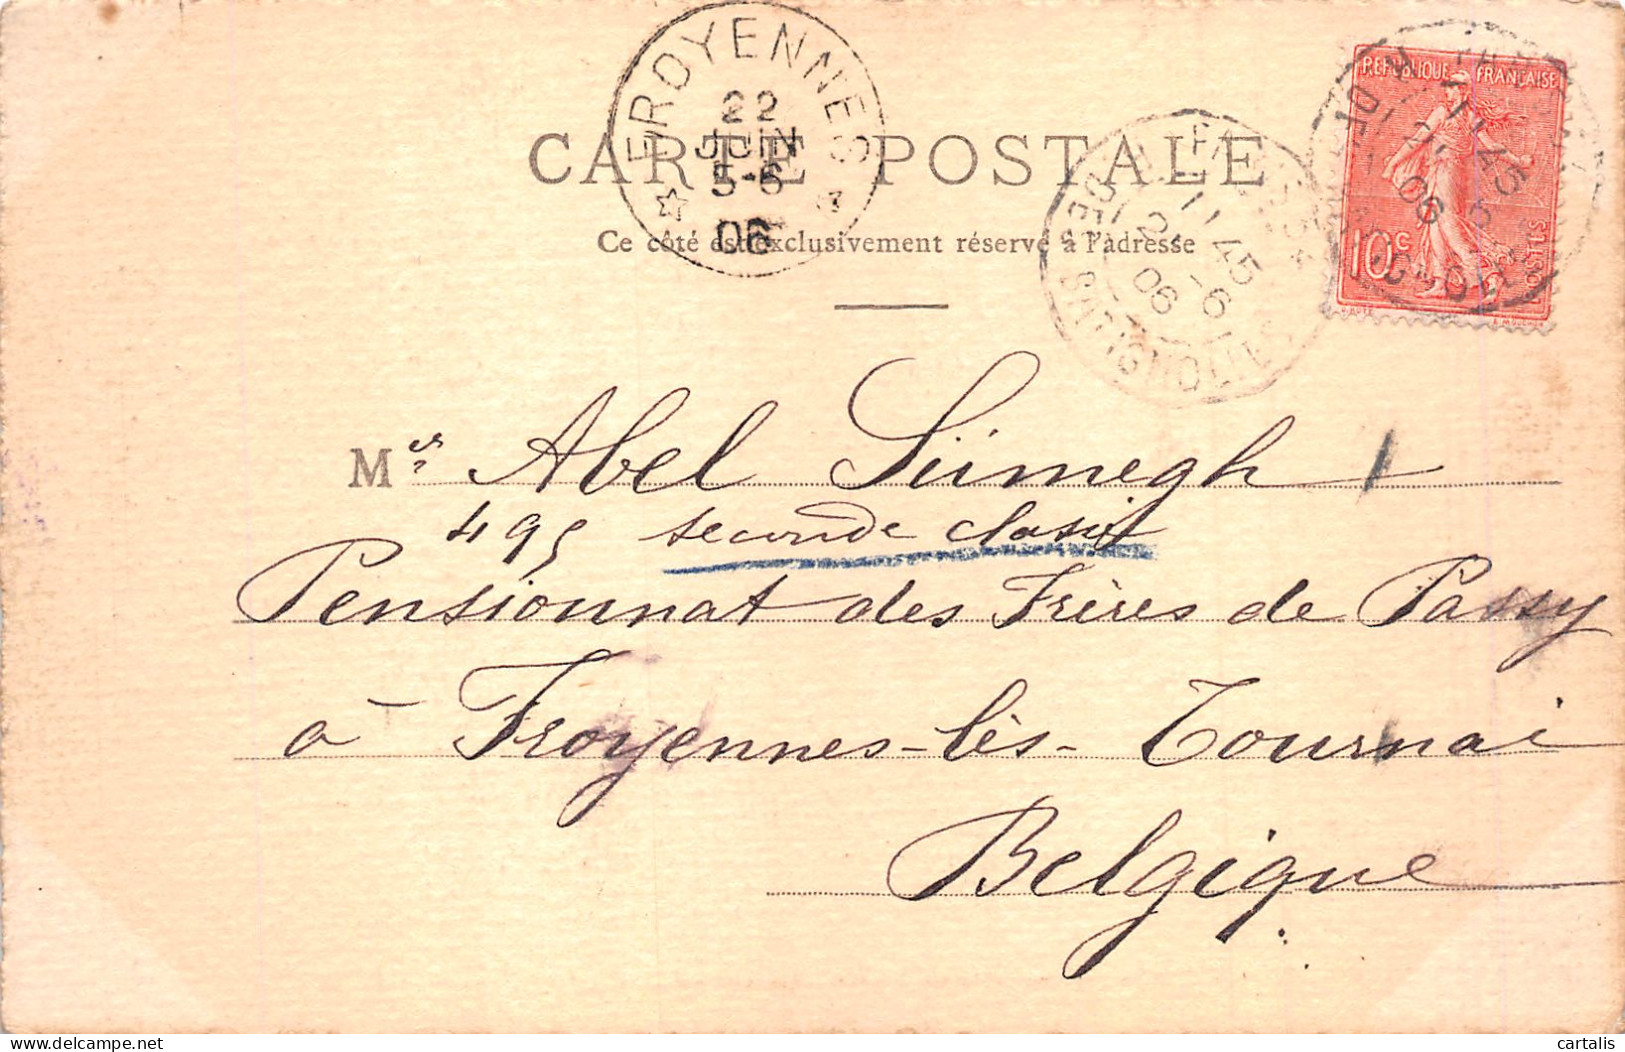 FROYENNES
22
JUIN
5-6
06
RÉPUBLIQUE FRANÇAISE
POSTES
10c
CARTE POSTALE
Ce côté est exclusivement réservé à l'adresse
11 45
21 -6
06
BATIGNOLLES
Mr Abel Sümegh
495 seconde classe
Pensionnat des Frères de Passy
à Froyennes-lès-Tournai
Belgique
cartalis